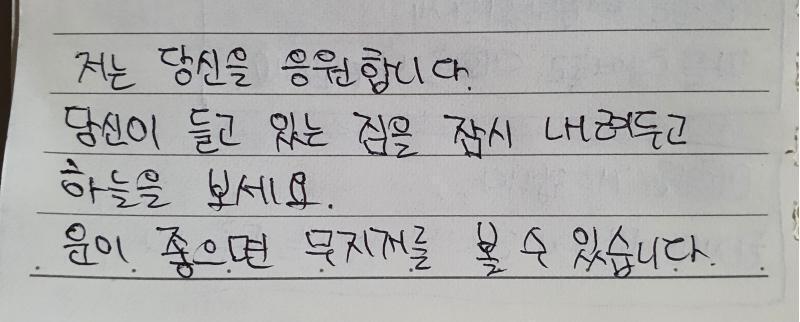 저는 당신을 응원합니다.
당신이 들고 있는 짐을 잠시 내려두고
하늘을 보세요.
운이 좋으면 무지개를 볼 수 있습니다.